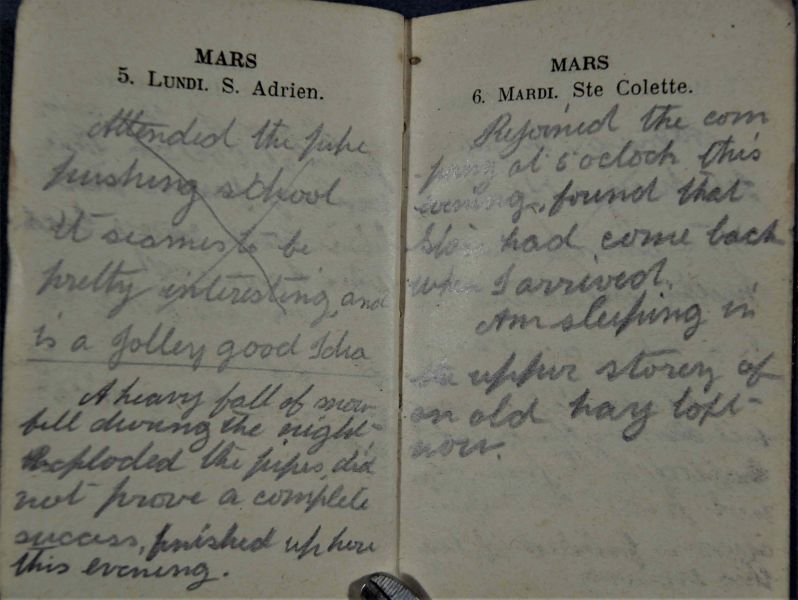 MARS
5. LUNDI. S. Adrien.
Attended the pipe
pushing school
It seames to be
pretty interesting, and
is a Jolley good Idia
A heavy fall of snow
fell durring the night
Exploded the pipes, did
not prove a complete
success, finished up here
this evening.
MARS
6. MARDI. Ste Colette.
Rejoined the com
pany at 5 oclock this
evening, found that
had come back
when I arrived.
Am sleeping in
the upper storey of
an old hay loft
now.